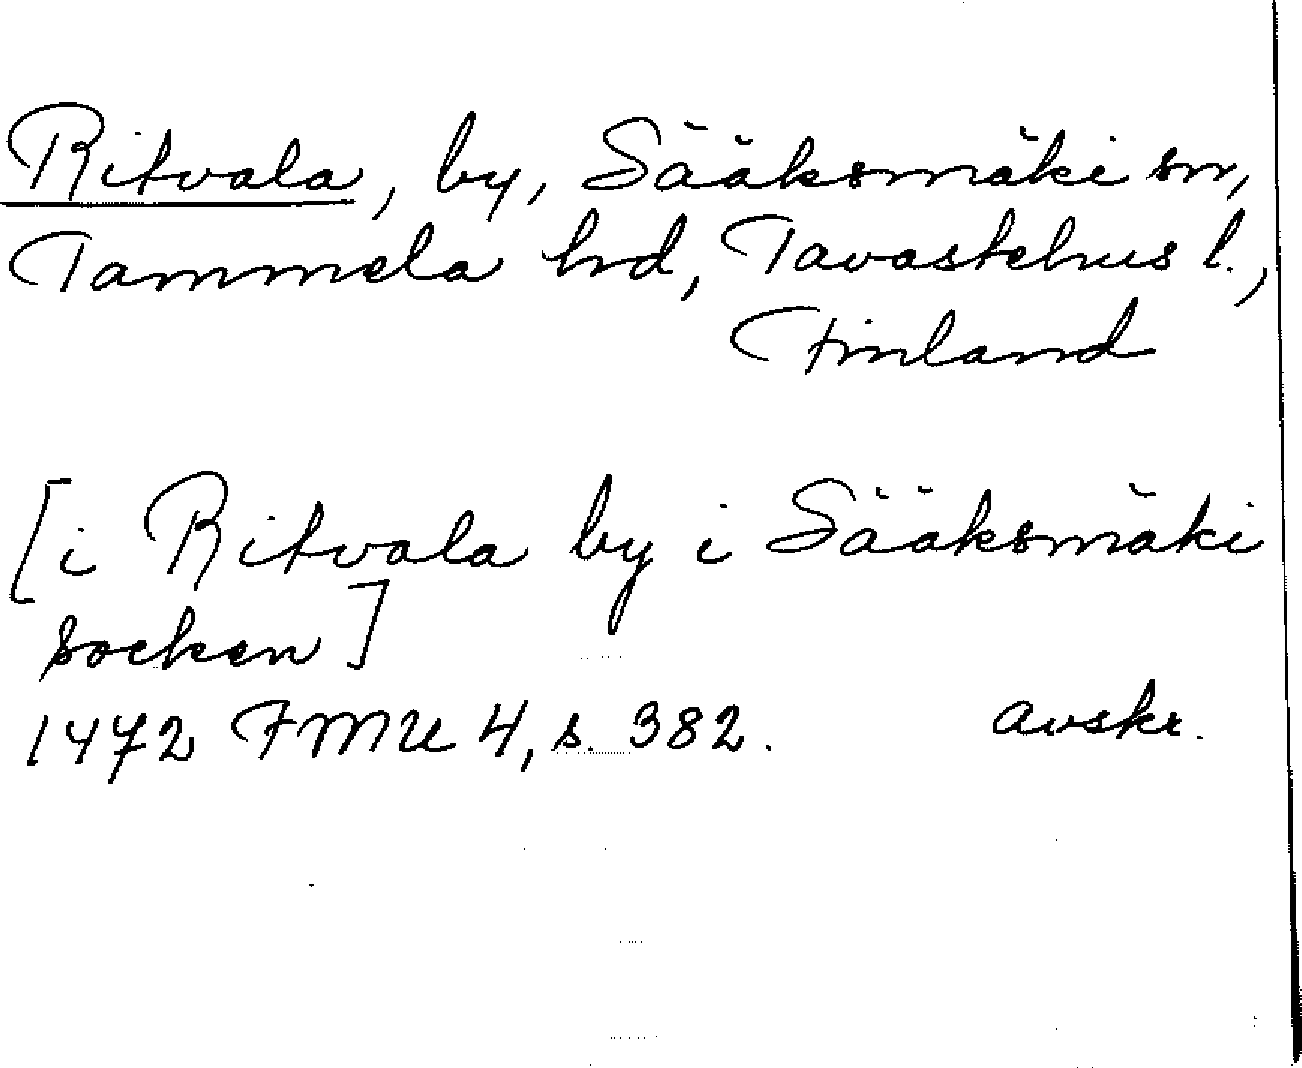 Ritvala, by, Sääksmäki sn,
Tammela hd, Tavastehus l.,
Finland
[i Ritvala by i Sääksmäki
socken]
1472 FMU 4, s. 382. avskr.